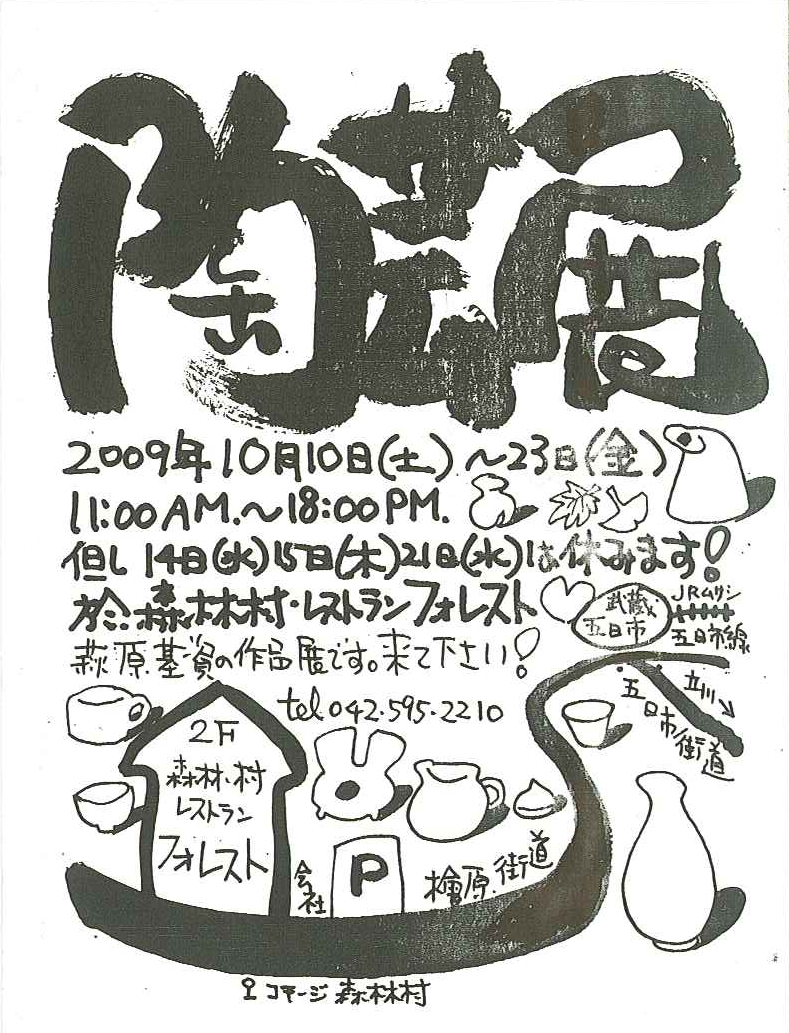 陶芸展
2009年10月10日(土)~23日(金)
11:00AM.~18:00PM.
但し 14日(水)15日(木)21日(水)は休みます!
於:森林村・レストランフォレスト
武蔵
五日市
JRムサシ
五日市線
萩原基資の作品展です。来て下さい!
tel 042-595-2210
立川
五日市街道
2F
森林村
レストラン
フォレスト
会社
P
檜原街道
コテージ 森林村